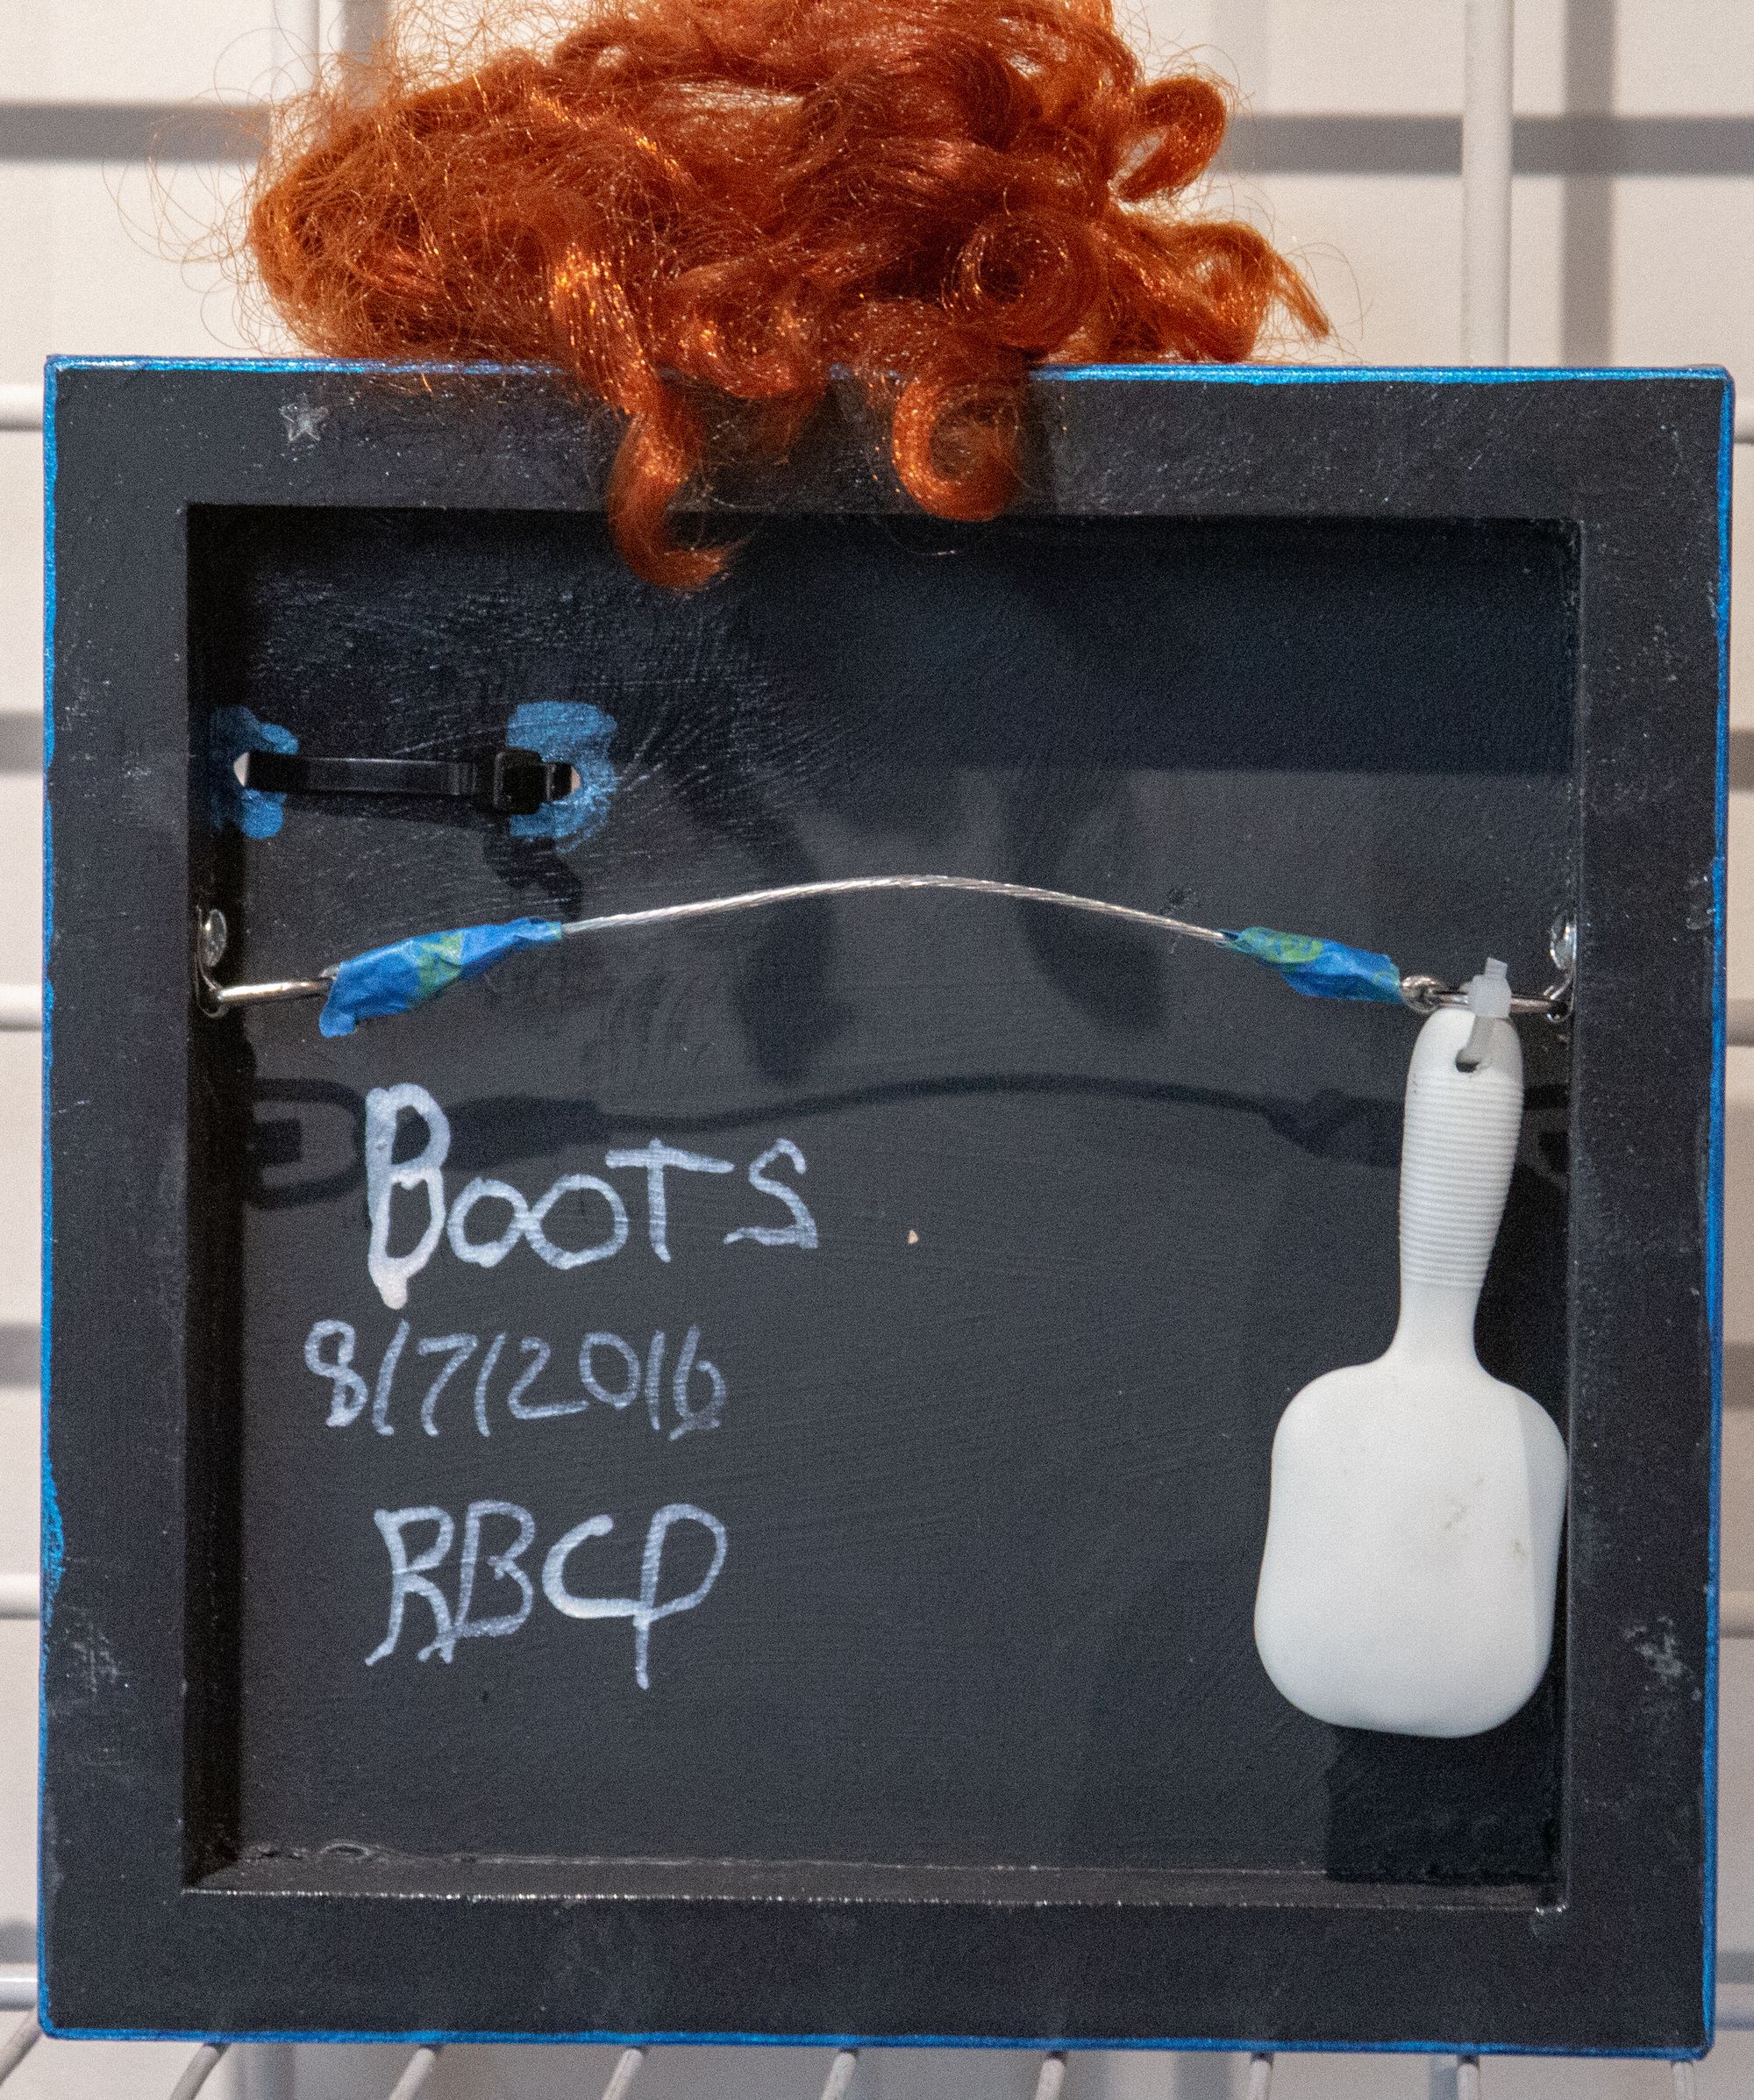 BooTS
8/7/2016
RBCP